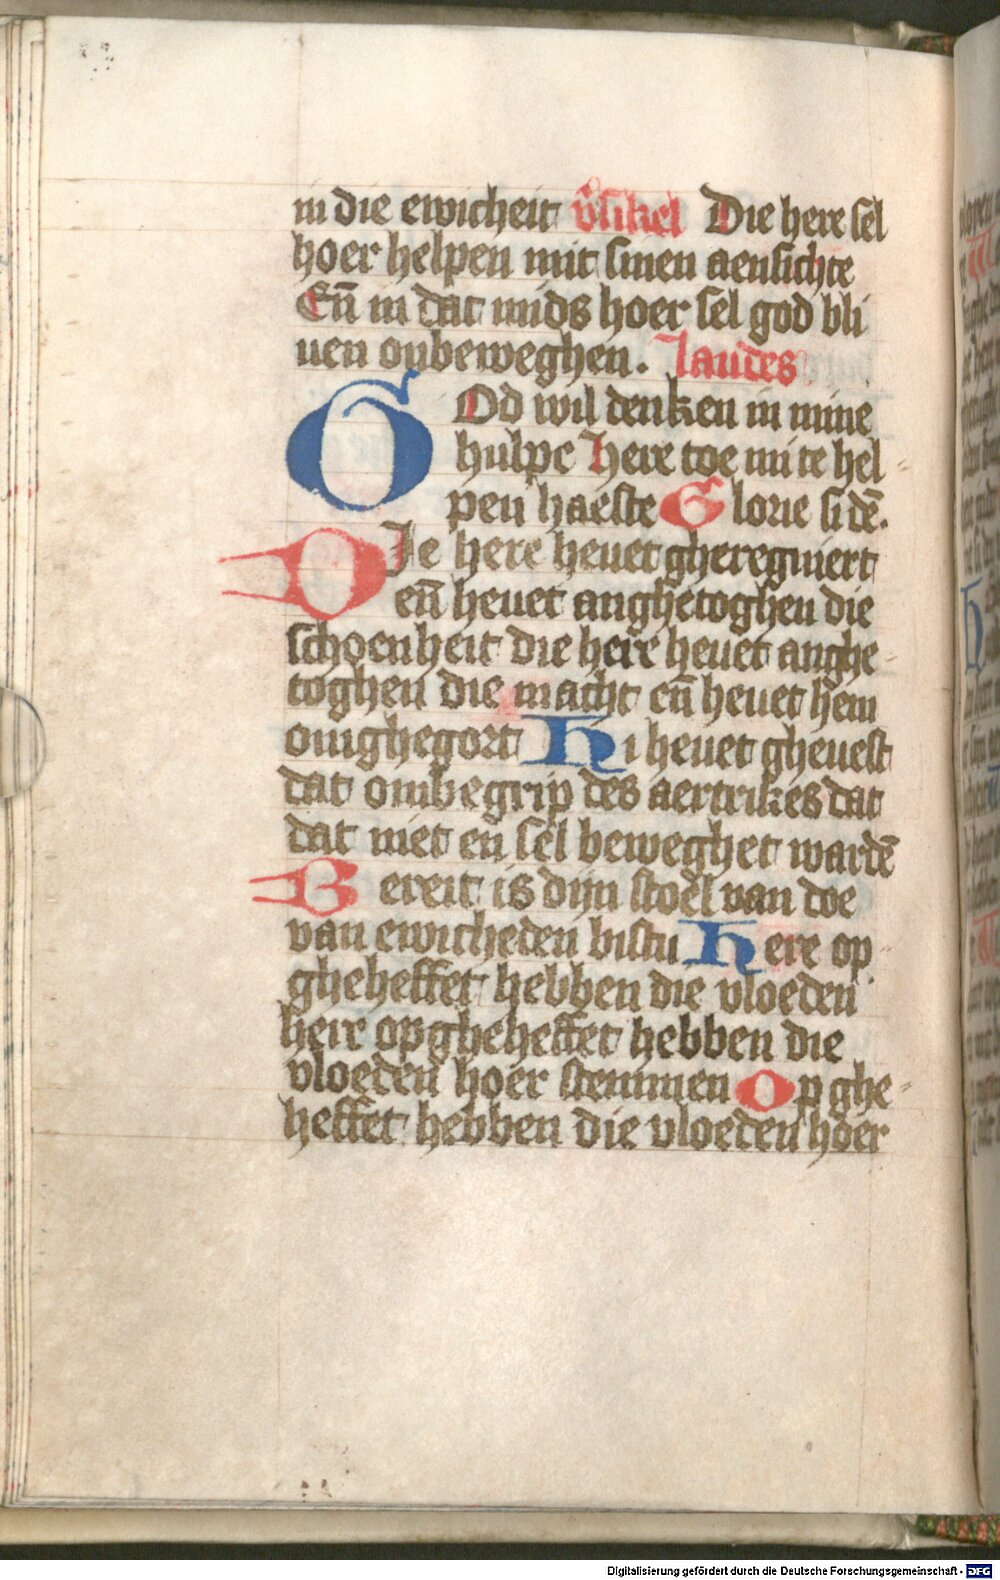 in die ewicheit v̾sikel Die here sel
hoer helpen mit sinen aensichte
En̄ in dat mids hoer sel god bli
uen onbeweghen. laudes
GOd wil denken in mine
hulpe here toe mi te hel
pen haeste Glorie si dē.
DIe here heuet gheregniert
en̄ heuet anghetoghen die
schoenheit die here heuet anghe
toghen die macht en̄ heuet hem
omghegort Hi heuet gheuest
dat ombegrip des aertrikes dat
dat niet en sel beweghet wardē
Bereit is dijn stoel van doe
van ewicheden bistu Here op
gheheffet hebben die vloeden
heir opgheheffet hebben die
vloeden hoer stemmen Opghe
heffet hebben die vloeden hoer
Digitalisierung gefördert durch die Deutsche Forschungsgemeinschaft - DFG